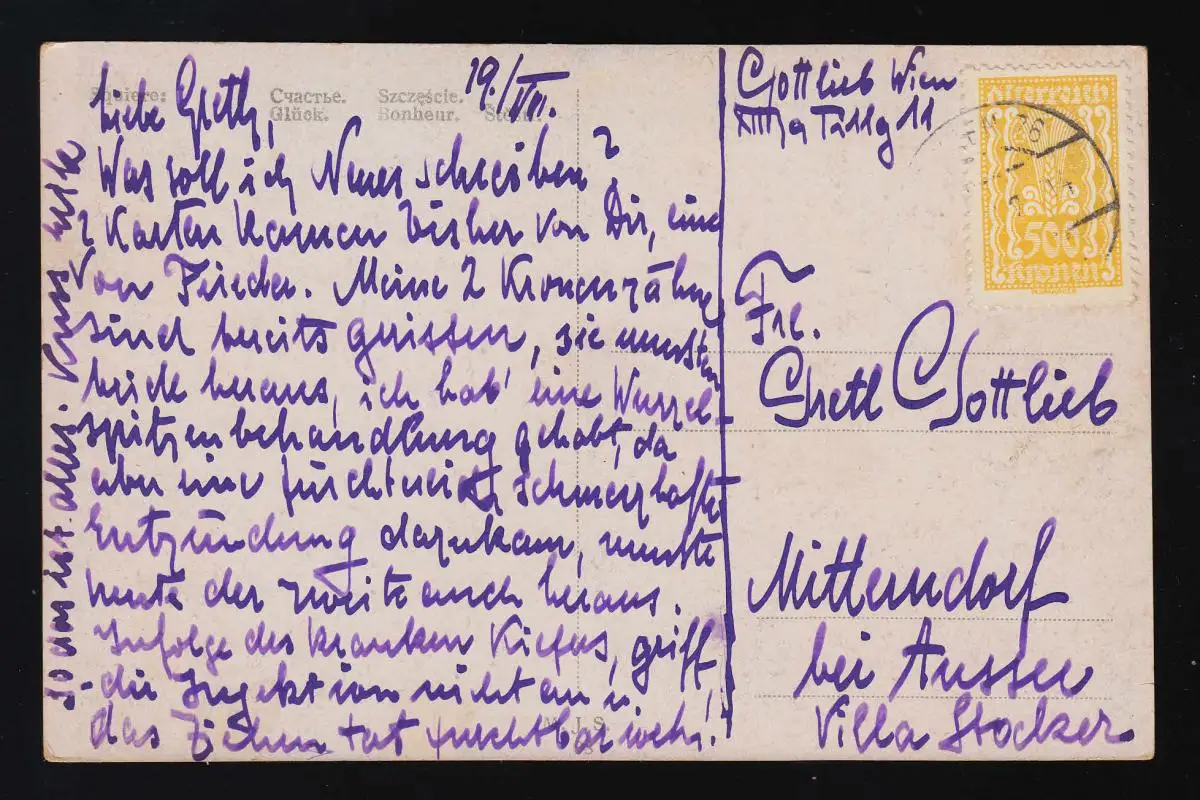 Squiere:
Счастье. Szczęście.
Glück. Bonheur.
19./VII.
Liebe Gretl,
Was soll ich Neues schreiben?
2 Karten kamen bisher von Dir, eine
von Frieder. Meine 2 Kronenzähne
sind bereits gerissen, sie mussten
beide heraus, ich hab' eine Wurzel-
spitzenbehandlung gehabt, da
aber eine fürchterlich schmerzhafte
Entzündung dazukam, musste
heute der zweite auch heraus.
Infolge des kranken Kiefers, griff
die Injektion nicht an u.
das Ziehen tat furchtbar weh!
so das ist alles. Kuss
M.J.S.
Gottlieb Wien
11
Österreich
500
Kronen
Frl.
Gretl Gottlieb
Mitterndorf
bei Aussee
Villa Stocker